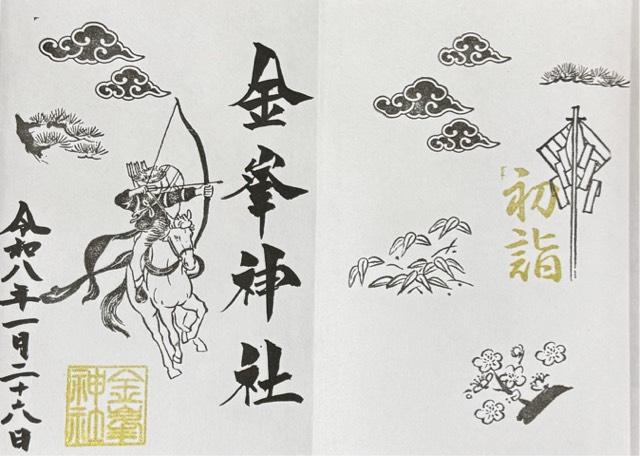 初詣
金峯神社
令和八年一月二十八日
金峯
神社